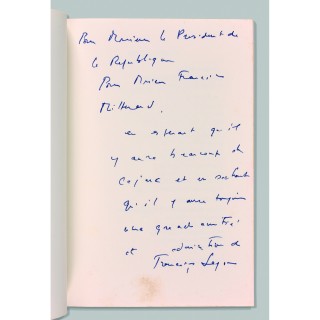 Pour Monsieur le Président de
la République
Pour Monsieur François
Mitterrand,
en espérant qu'il
y aura beaucoup de
et en sachant
qu'il y aura toujours
une grande amitié
et admiration de
Françoise Sagan